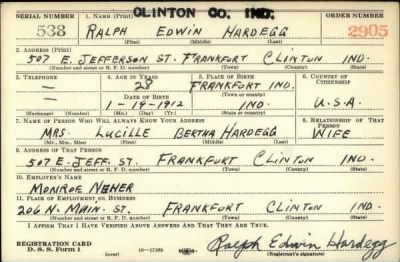 CLINTON CO. IND.
SERIAL NUMBER 1. NAME (Print) ORDER NUMBER
538 RALPH EDWIN HARDEGG 2905
(First) (Middle) (Last)
2. ADDRESS (Print)
507 E. JEFFERSON ST. FRANKFURT CLINTON IND.
(Number and street or R. F. D. number) (Town) (County) (State)
3. TELEPHONE 4. AGE IN YEARS 5. PLACE OF BIRTH 6. COUNTRY OF CITIZENSHIP
— 28 FRANKFURT IND.
DATE OF BIRTH (Town or county)
— 1-19-1912 IND. U.S.A.
(Exchange) (Number) (Mo.) (Day) (Yr.) (State or country)
7. NAME OF PERSON WHO WILL ALWAYS KNOW YOUR ADDRESS 8. RELATIONSHIP OF THAT PERSON
MRS. LUCILLE BERTHA HARDEGG WIFE
(Mr., Mrs., Miss) (First) (Middle) (Last)
9. ADDRESS OF THAT PERSON
507 E. JEFF. ST. FRANKFURT CLINTON IND.
(Number and street or R. F. D. number) (Town) (County) (State)
10. EMPLOYER'S NAME
MONROE NEHER
11. PLACE OF EMPLOYMENT OR BUSINESS
206 N. MAIN. ST. FRANKFURT CLINTON IND.
(Number and street or R. F. D. number) (Town) (County) (State)
I AFFIRM THAT I HAVE VERIFIED ABOVE ANSWERS AND THAT THEY ARE TRUE.
REGISTRATION CARD
D. S. S. Form 1 (over) Ralph Edwin Hardegg
(Registrant's signature)